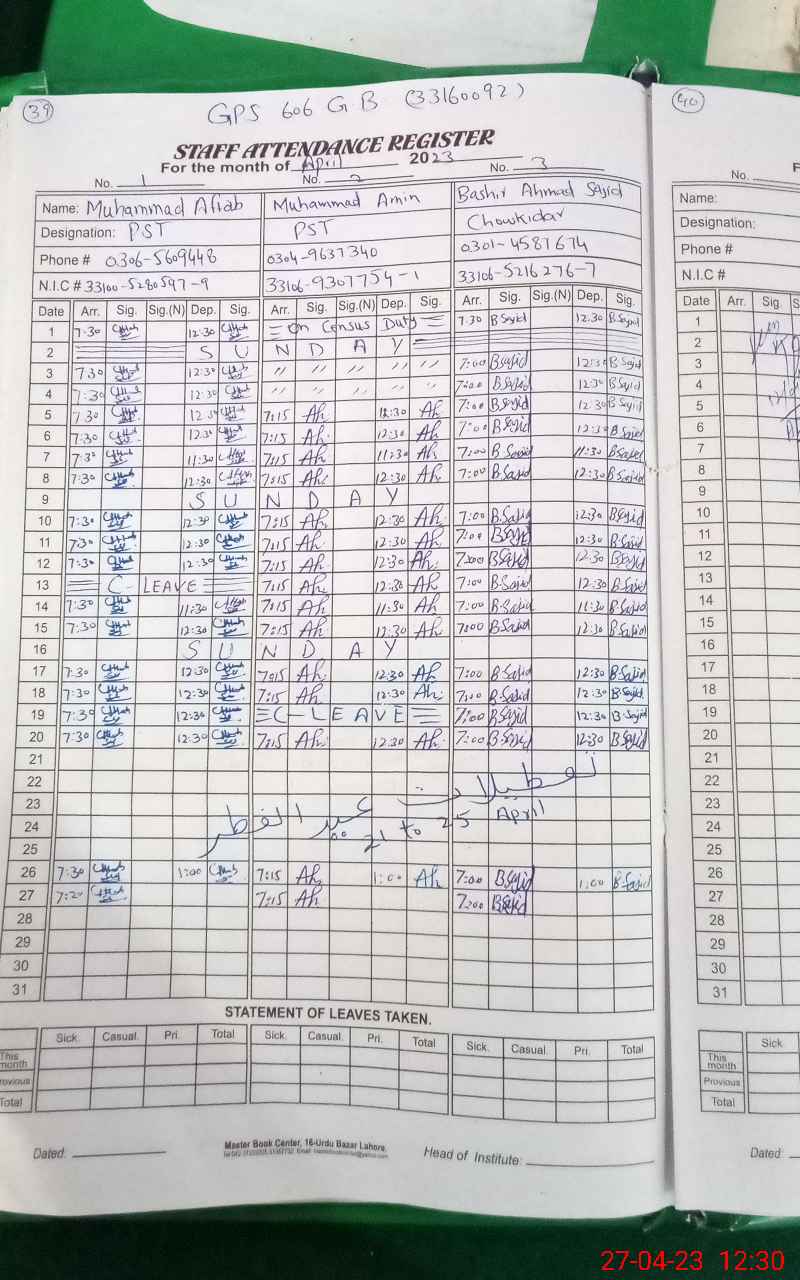 39
GPS 606 G B (33160092)
40
STAFF ATTENDANCE REGISTER
For the month of April 2023
No. 1 No. 2 No. 3
No.
Name: Muhammad Aftab Muhammad Amin Bashir Ahmad Sajid
Name:
Designation: PST PST Chowkidar
Designation:
Phone # 0306-5609448 0304-9637340 0301-4587674
Phone #
N.I.C # 33100-5280597-9 33106-9307754-1 33106-5216276-7
N.I.C #
Date Arr. Sig. Sig.(N) Dep. Sig. Arr. Sig. Sig.(N) Dep. Sig. Arr. Sig. Sig.(N) Dep. Sig.
Date Arr. Sig.
1 7:30 12:30 On Census Duty 7:30 B Sajid 12:30 B Sajid
2 S U N D A Y
3 7:30 12:30 " " " " " 7:00 B Sajid 12:30 B Sajid
4 7:30 12:30 " " " " " 7:00 B Sajid 12:30 B Sajid
5 7:30 12:30 7:15 Ah 12:30 Ah 7:00 B Sajid 12:30 B Sajid
6 7:30 12:30 7:15 Ah 12:30 Ah 7:00 B Sajid 12:30 B Sajid
7 7:30 11:30 7:15 Ah 11:30 Ah 7:00 B Sajid 11:30 B Sajid
8 7:30 12:30 7:15 Ah 12:30 Ah 7:00 B Sajid 12:30 B Sajid
9 S U N D A Y
10 7:30 12:30 7:15 Ah 12:30 Ah 7:00 B Sajid 12:30 B Sajid
11 7:30 12:30 7:15 Ah 12:30 Ah 7:00 B Sajid 12:30 B Sajid
12 7:30 12:30 7:15 Ah 12:30 Ah 7:00 B Sajid 12:30 B Sajid
13 C-LEAVE 7:15 Ah 12:30 Ah 7:00 B Sajid 12:30 B Sajid
14 7:30 11:30 7:15 Ah 11:30 Ah 7:00 B Sajid 11:30 B Sajid
15 7:30 12:30 7:15 Ah 12:30 Ah 7:00 B Sajid 12:30 B Sajid
16 S U N D A Y
17 7:30 12:30 7:15 Ah 12:30 Ah 7:00 B Sajid 12:30 B Sajid
18 7:30 12:30 7:15 Ah 12:30 Ah 7:00 B Sajid 12:30 B Sajid
19 7:30 12:30 C-LEAVE 7:00 B Sajid 12:30 B Sajid
20 7:30 12:30 7:15 Ah 12:30 Ah 7:00 B Sajid 12:30 B Sajid
21
22
23
24
25
تعطیلات عید الفطر
21 to 25 April
26 7:30 1:00 7:15 Ah 1:00 Ah 7:00 B Sajid 1:00 B Sajid
27 7:20 7:15 Ah 7:00 B Sajid
28
29
30
31
1
2
3
4
5
6
7
8
9
10
11
12
13
14
15
16
17
18
19
20
21
22
23
24
25
26
27
28
29
30
31
STATEMENT OF LEAVES TAKEN.
Sick. Casual. Pri. Total Sick. Casual. Pri. Total Sick. Casual. Pri. Total
Sick
This month
Provious
Total
This month
Previous
Total
Dated: Master Book Center, 16-Urdu Bazar Lahore. Head of Institute:
Dated
27-04-23 12:30